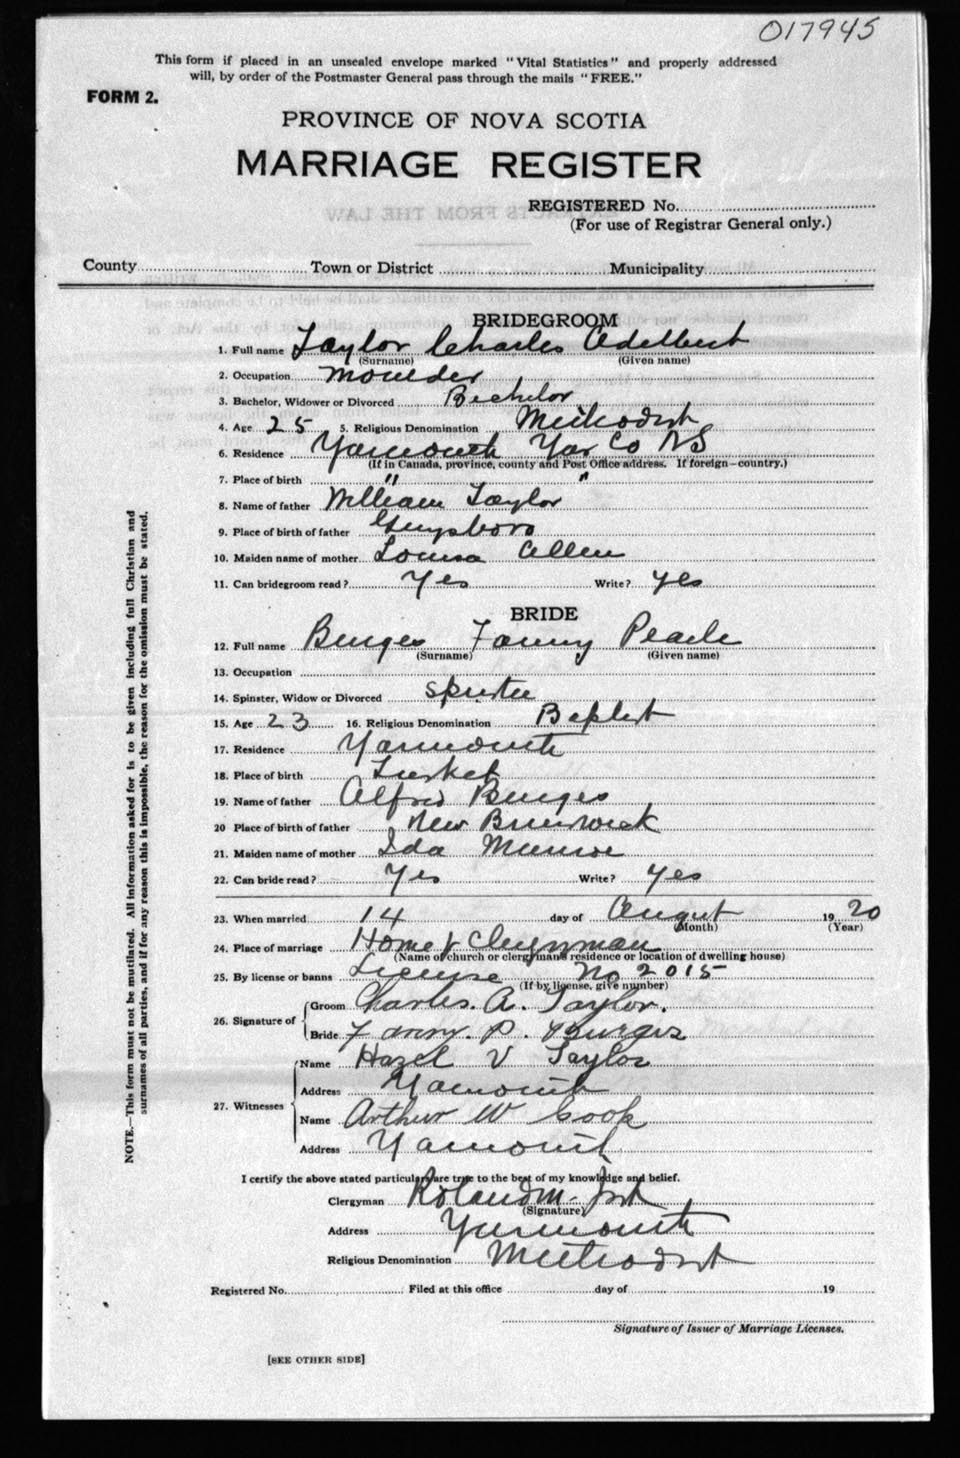 017945
This form if placed in an unsealed envelope marked "Vital Statistics" and properly addressed
will, by order of the Postmaster General pass through the mails "FREE."
FORM 2.
PROVINCE OF NOVA SCOTIA
MARRIAGE REGISTER
REGISTERED No.
(For use of Registrar General only.)
County Town or District Municipality
BRIDEGROOM
1. Full name Taylor Charles Adelbert
(Surname) (Given name)
2. Occupation Moulder
3. Bachelor, Widower or Divorced Bachelor
4. Age 25 5. Religious Denomination Methodist
6. Residence Yarmouth Yar Co NS
(If in Canada, province, county and Post Office address. If foreign—country.)
7. Place of birth " "
8. Name of father William Taylor
9. Place of birth of father Guysboro
10. Maiden name of mother Louisa Allen
11. Can bridegroom read? Yes Write? yes
BRIDE
12. Full name Burges Fanny Pearle
(Surname) (Given name)
13. Occupation
14. Spinster, Widow or Divorced
15. Age 23 16. Religious Denomination Baptist
17. Residence Yarmouth
18. Place of birth Tusket
19. Name of father Alfred Burges
20 Place of birth of father New Brunswick
21. Maiden name of mother Ida Munroe
22. Can bride read? Yes Write? Yes
23. When married 14 day of August 1920
(Month) (Year)
24. Place of marriage Home of Clergyman
(Name of church or clergyman's residence or location of dwelling house)
25. By license or banns License No 2015
(If by license, give number)
26. Signature of Groom Charles. A. Taylor.
Bride Fanny. P. Burges
27. Witnesses Name Hazel V Taylor
Address Yarmouth
Name Arthur W Cook
Address Yarmouth
I certify the above stated particulars are true to the best of my knowledge and belief.
Clergyman Roland M.
(Signature)
Address Yarmouth
Religious Denomination Methodist
Registered No. Filed at this office day of 19
Signature of Issuer of Marriage Licenses.
[SEE OTHER SIDE]
NOTE.—This form must not be mutilated. All information asked for is to be given including full Christian and
surnames of all parties, and if for any reason this is impossible, the reason for the omission must be stated.